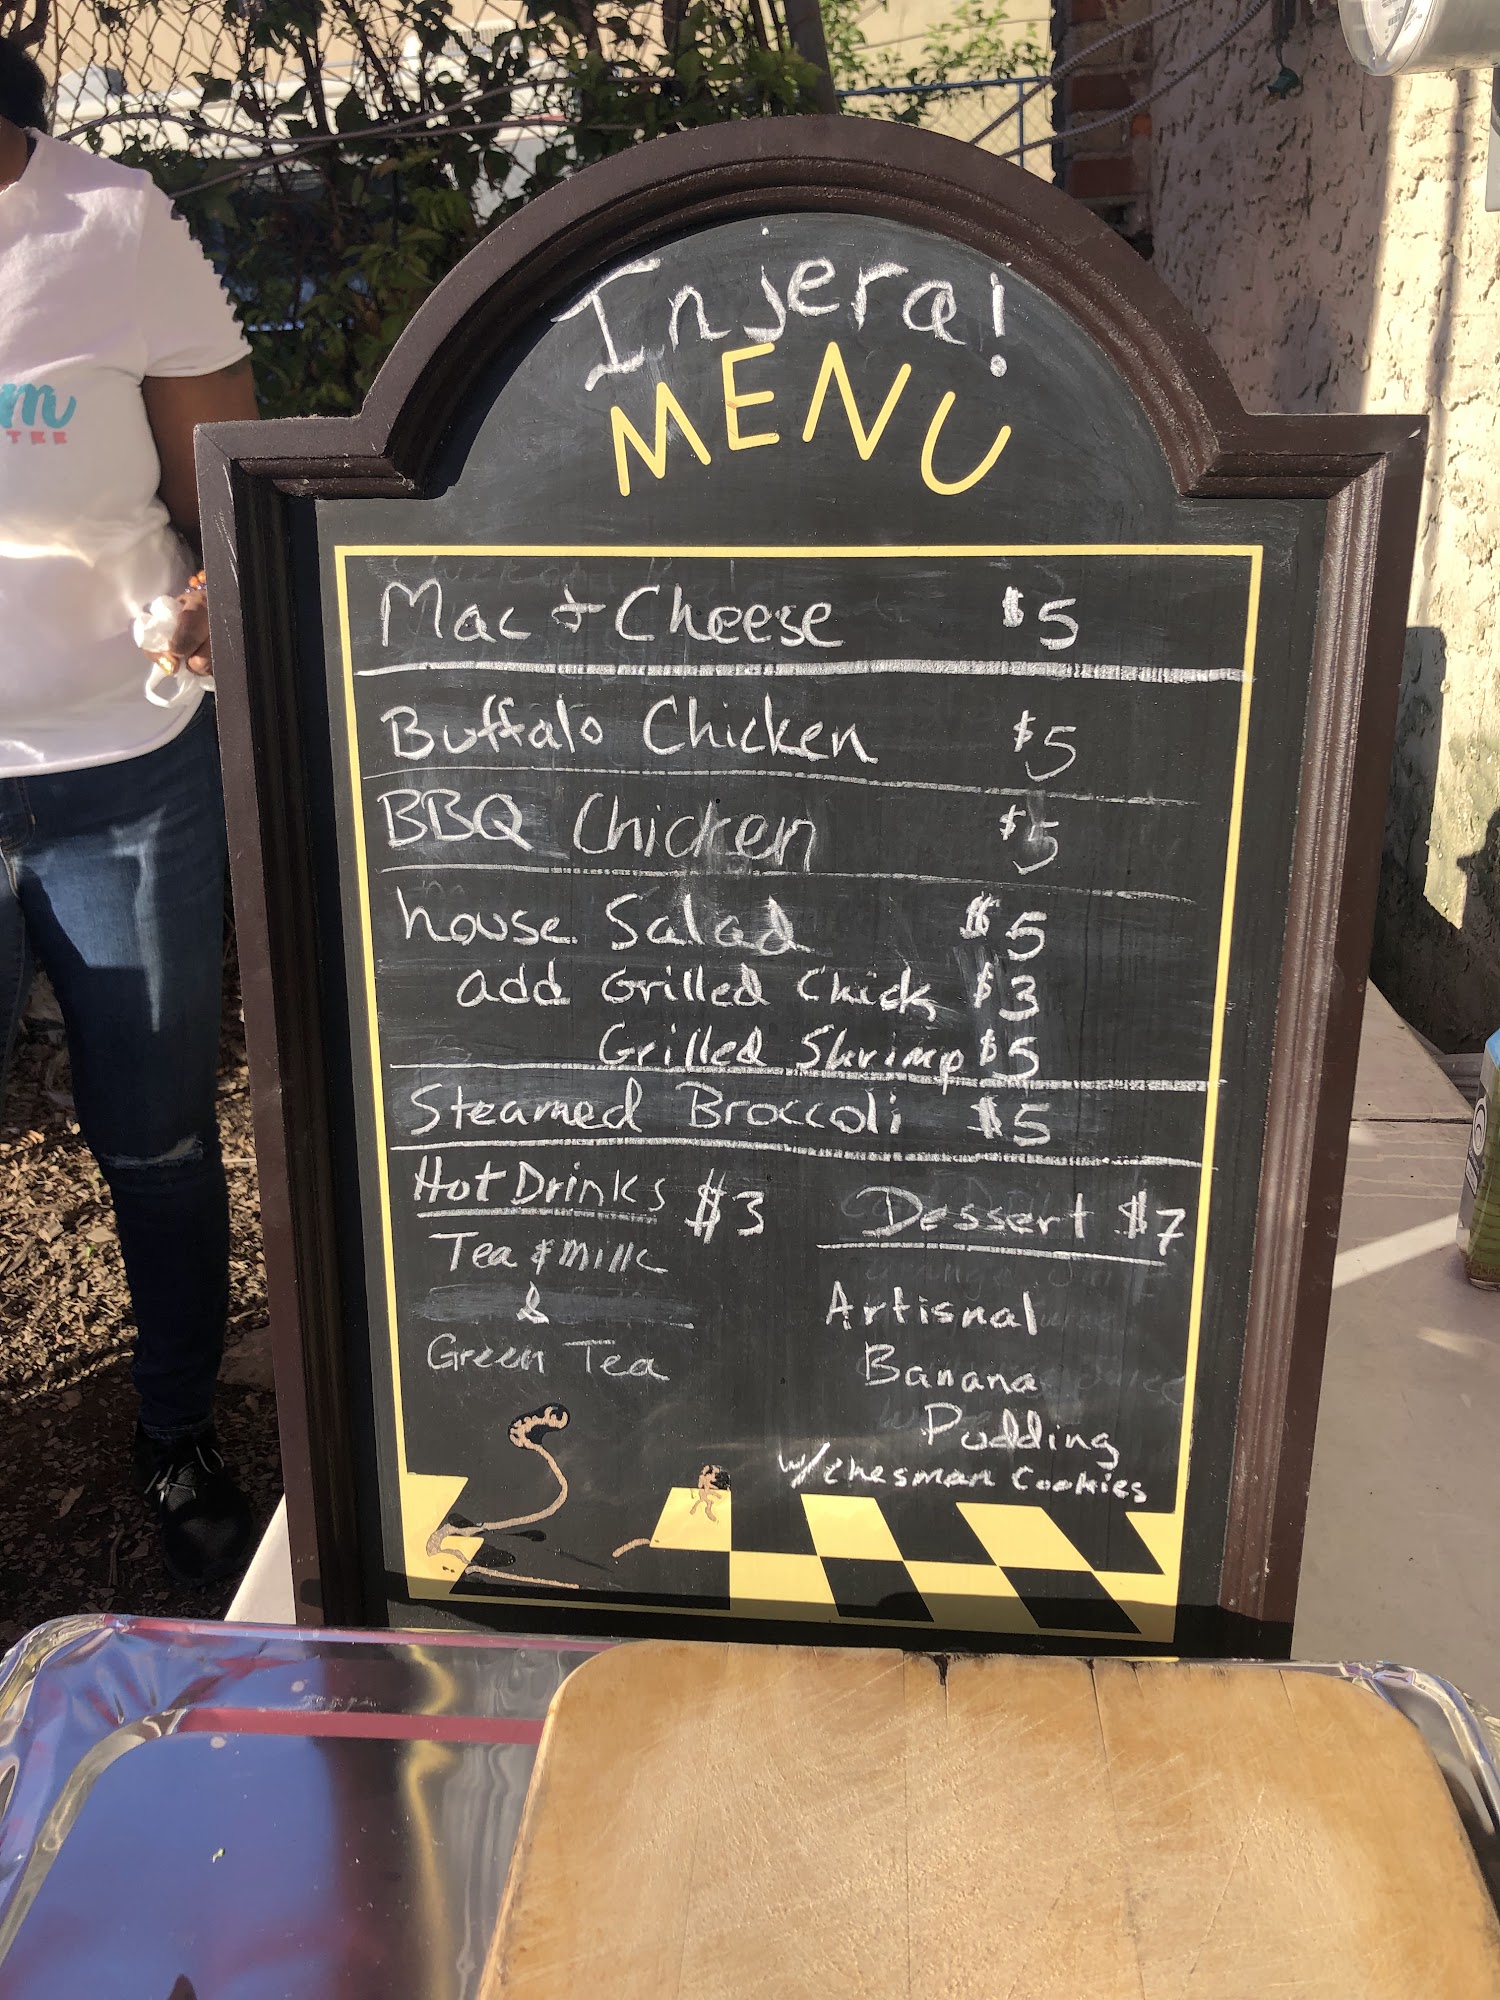 Injera!
MENU
Mac & Cheese $5
Buffalo Chicken $5
BBQ Chicken $5
house Salad $5
add Grilled Chick $3
Grilled Shrimp $5
Steamed Broccoli $5
Hot Drinks $3
Tea & milk
&
Green Tea
Dessert $7
Artisnal
Banana
Pudding
w/chesman Cookies